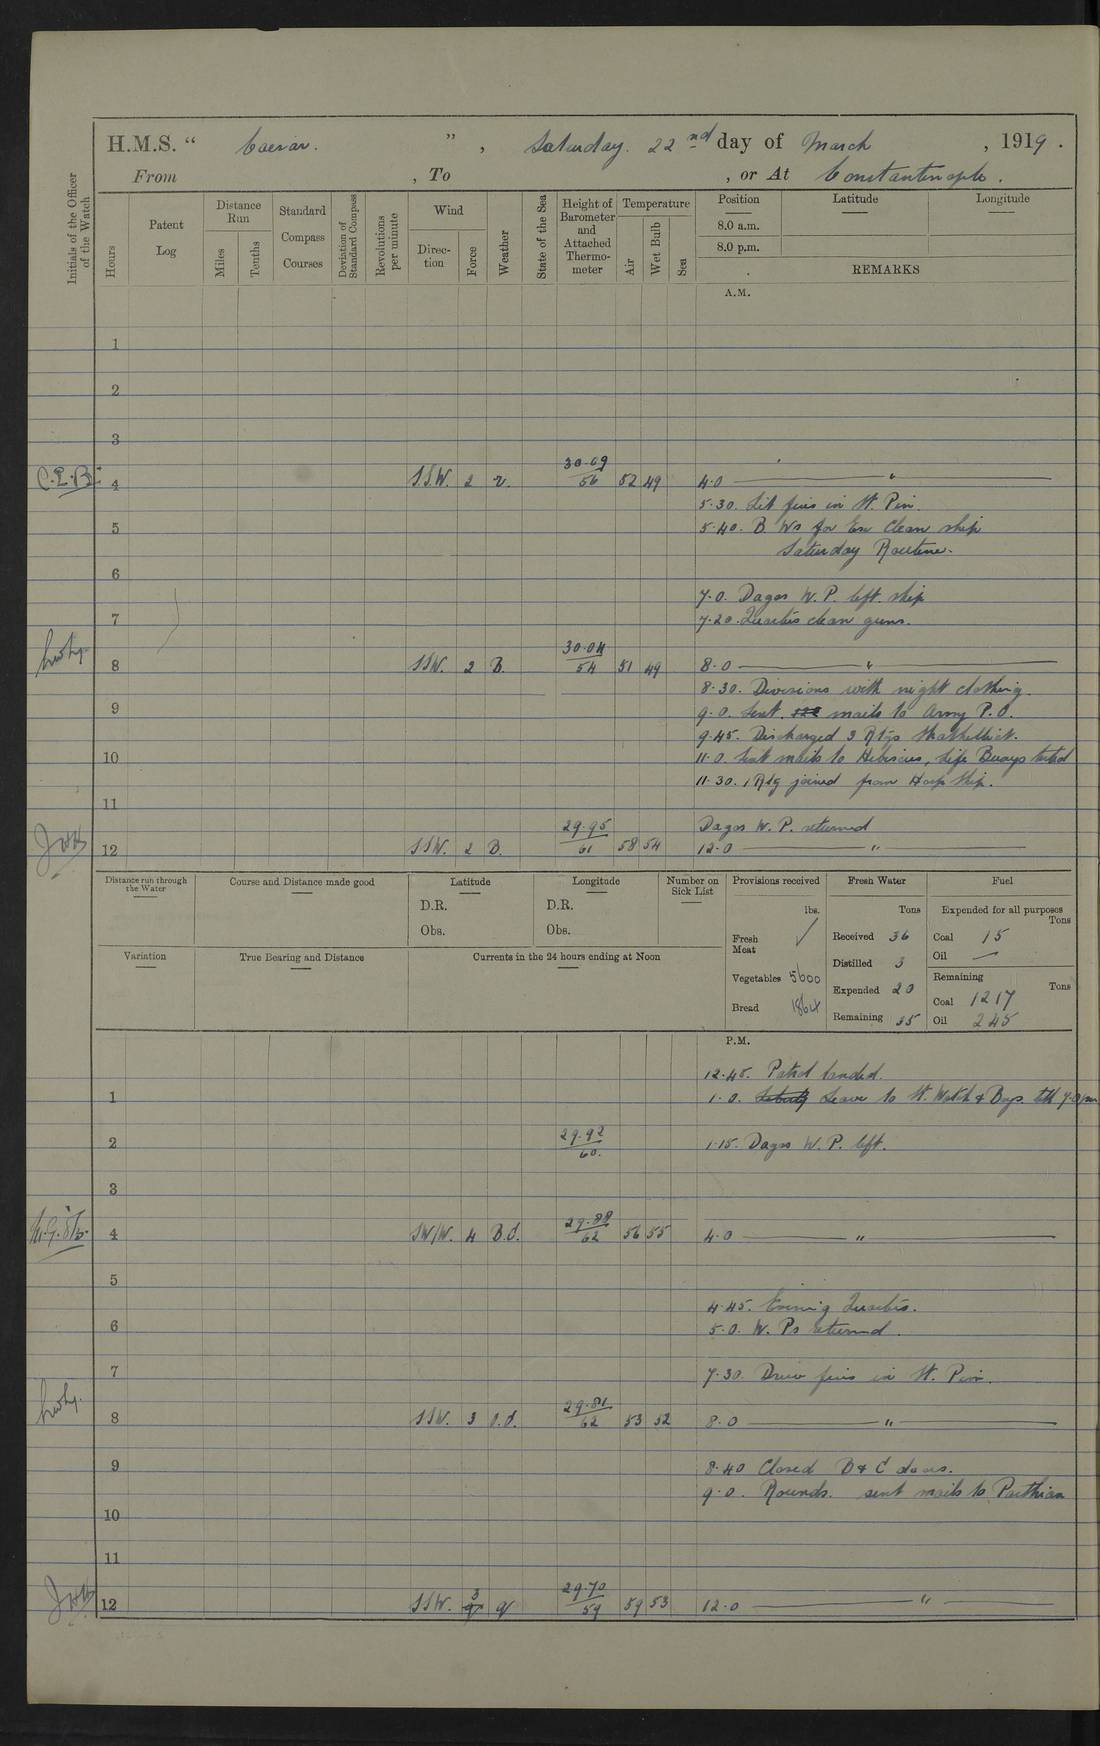 H.M.S. " Caesar. " , Saturday. 22nd day of March , 1919 .
From , To , or At Constantinople .
Initials of the Officer of the Watch
Hours
Patent Log
Distance Run
Miles
Tenths
Standard Compass Courses
Deviation of Standard Compass
Revolutions per minute
Wind
Direction
Force
Weather
State of the Sea
Height of Barometer and Attached Thermometer
Temperature
Air
Wet Bulb
Sea
Position Latitude Longitude
8.0 a.m.
8.0 p.m.
REMARKS
A.M.
1
2
3
C.E.B. 4 S.S.W. 2 30.09/56 52 49 4.0 "
5.30. Lit fires in St. Pin.
5 5.40. B. Ws for Ex Clean ship
Saturday Routine.
6
7.0. Dagos W. P. left ship
7 7.20. Quarters clean guns.
8 SSW. 2 B. 30.04/54 51 49 8.0 "
8.30. Divisions with night clothing.
9 9.0. Sent mails to Army P.O.
9.45. Discharged 3 Rtgs
10 11.0. Sent mails to Hibiscus, Life Buoys tested
11.30. 1 Rtg joined from Hosp Ship.
11
Dagos W. P. returned
12 SSW. 2 B. 29.95/61 58 54 12.0 "
Distance run through the Water
Course and Distance made good
Latitude
Longitude
Number on Sick List
Provisions received
Fresh Water
Fuel
D.R. D.R. lbs. Tons Expended for all purposes Tons
Obs. Obs. Fresh Meat ✓ Received 36 Coal 15
Distilled 3 Oil —
Variation True Bearing and Distance Currents in the 24 hours ending at Noon
Vegetables 5600 Expended 20 Remaining Tons
Bread 1864 Coal 1217
Remaining 35 Oil 245
P.M.
12.45. Patrol landed.
1 1.0. Leave to St. Watch & Boys till 7.0 pm
2 29.92/60. 1.15. Dagos W. P. left.
3
4 SW/W. 4 B.d. 29.88/62 56 55 4.0 "
5
4.45. Evening Quarters.
6 5.0. W. Ps returned.
7 7.30. Drew fires in St. Pin.
8 SSW. 3 o.d. 29.81/62 53 52 8.0 "
9 8.40 Closed B & C doors.
9.0. Rounds. sent mails to Parthian
10
11
12 SSW. 3 q 29.70/59 59 53 12.0 "